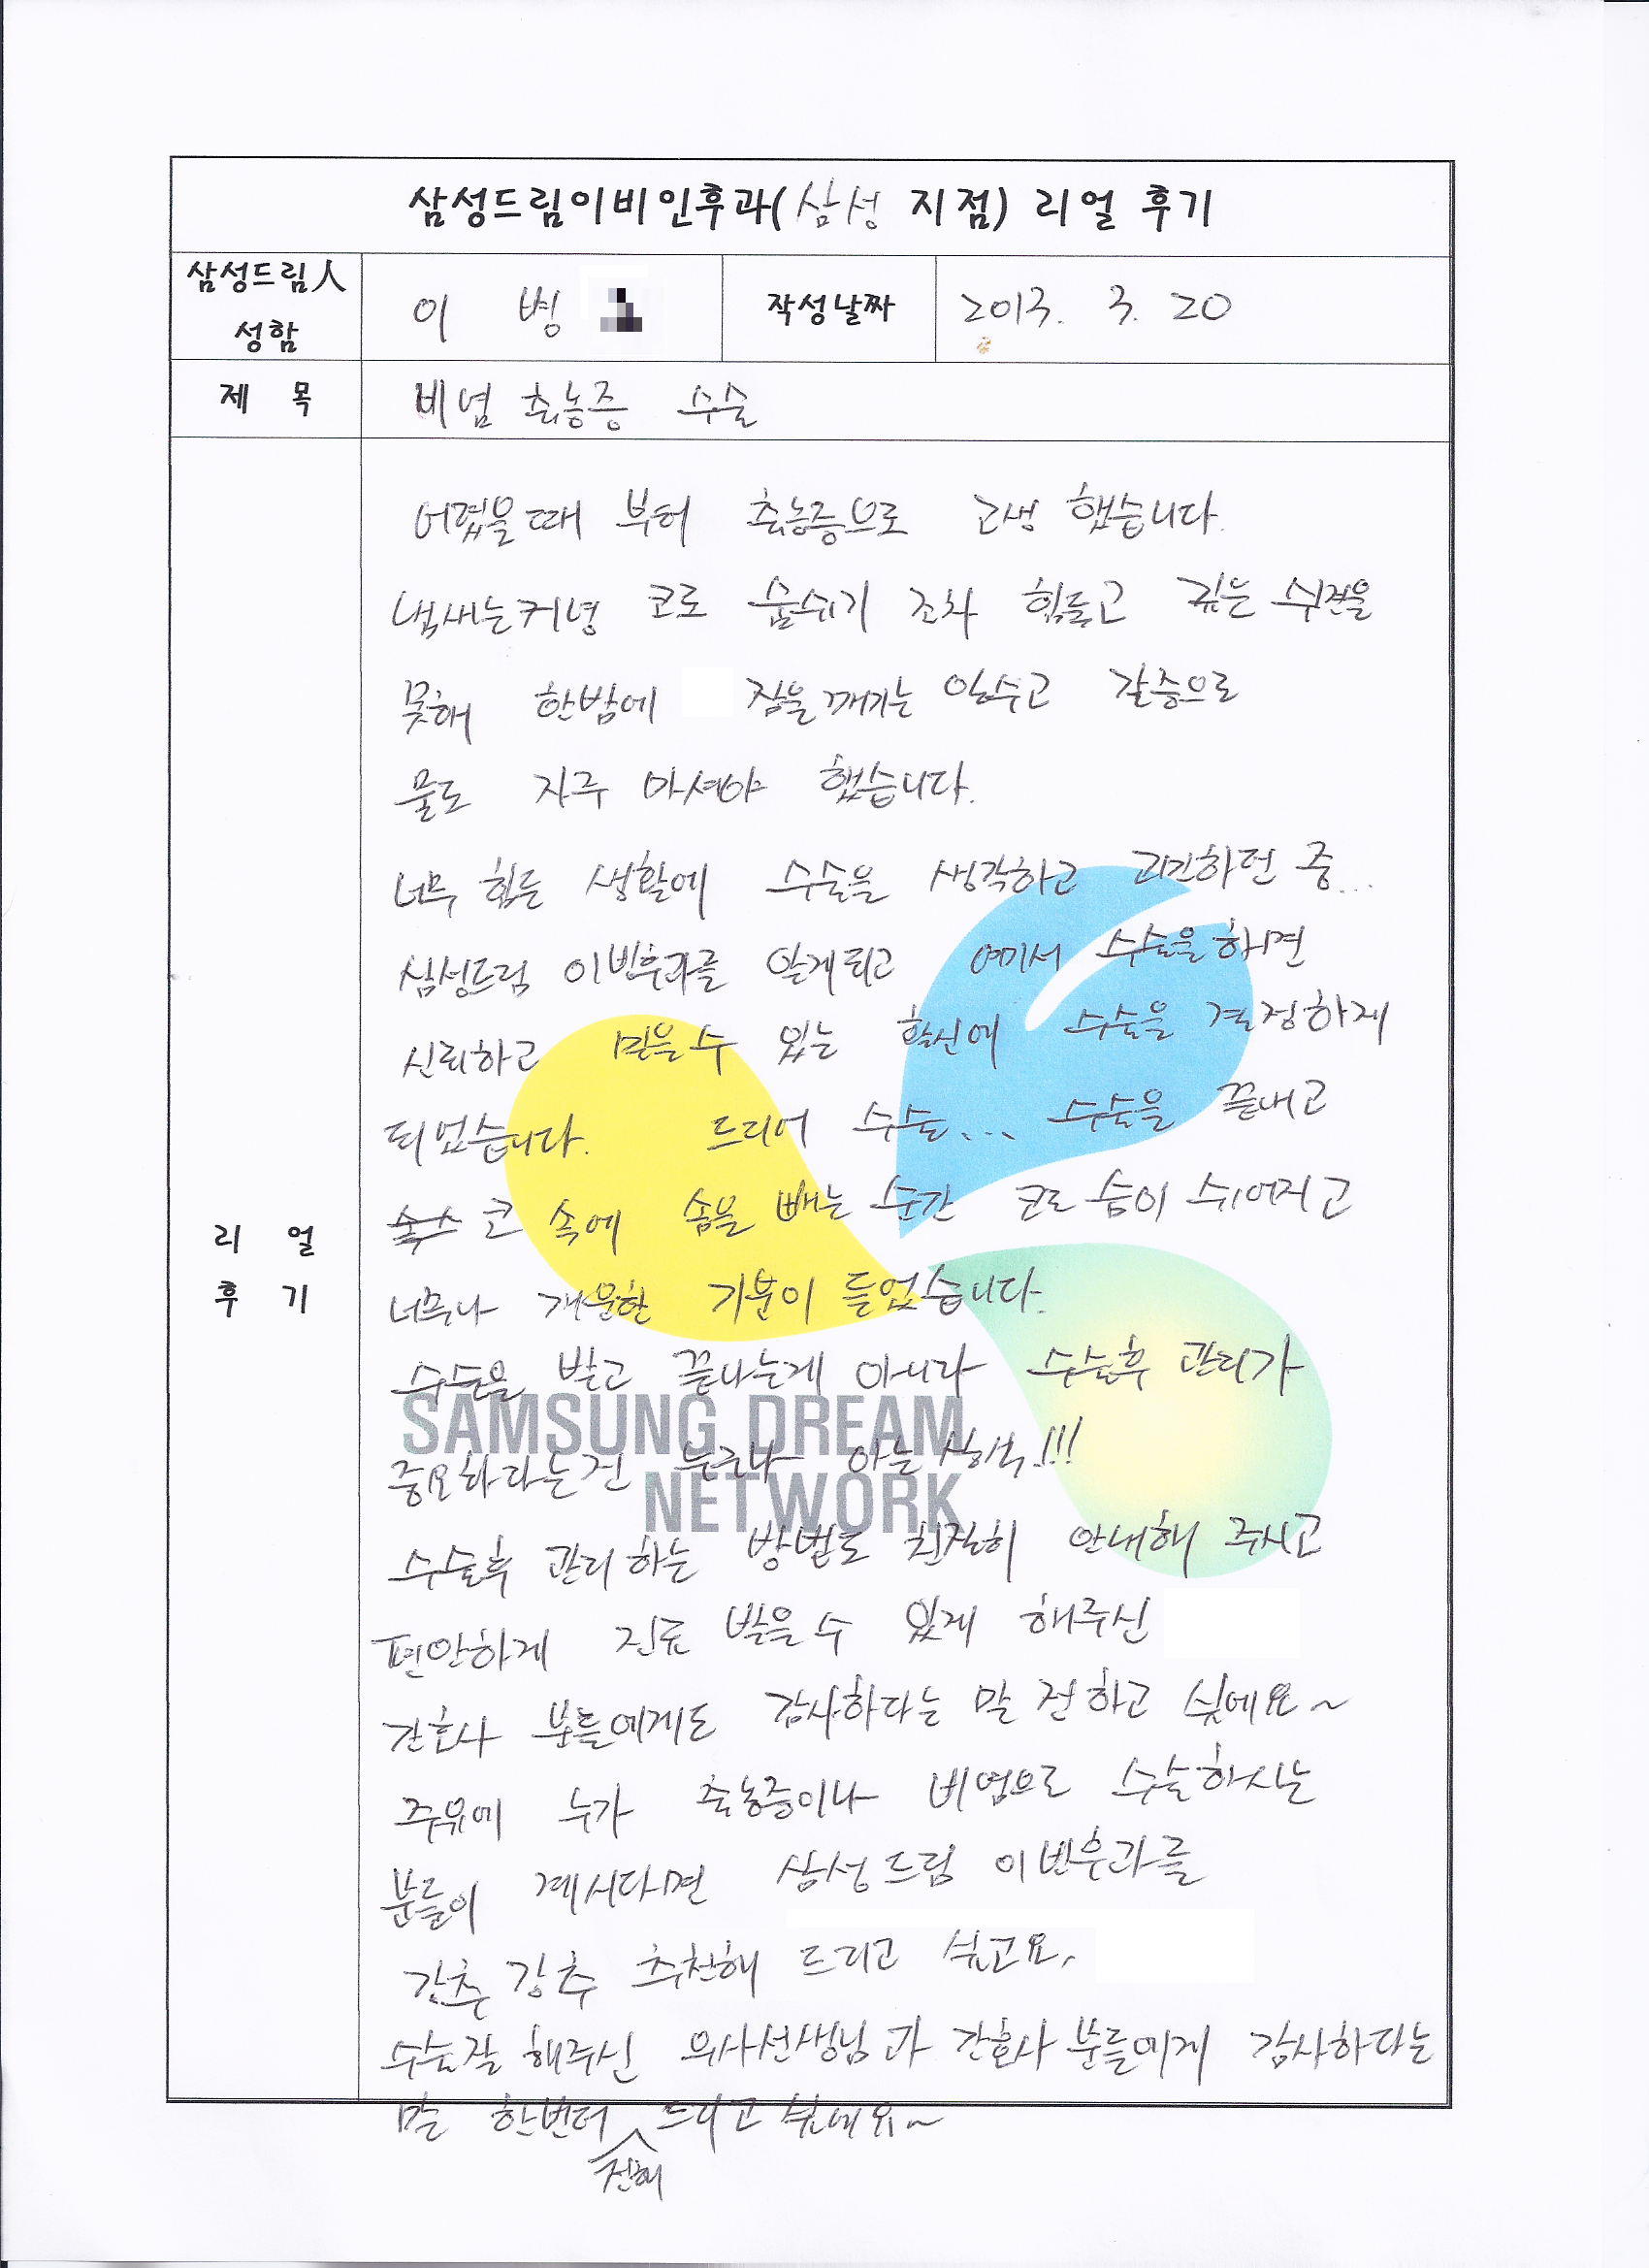 삼성드림이비인후과(삼성 지점) 리얼 후기
삼성드림人 성함
이 병
작성날짜
2013. 3. 20
제 목
비염 축농증 수술
리 얼
후 기
어렸을때 부터 축농증으로 고생 했습니다.
냄새는커녕 코로 숨쉬기 조차 힘들고 깊은 수면을
못해 한밤에 잠을 깨기는 일수고 갈증으로
물도 자주 마셔야 했습니다.
너무 힘든 생활에 수술을 생각하고 고민하던 중...
삼성드림 이빈후과를 알게되고 여기서 수술을 하면
신뢰하고 믿을수 있는 확신에 수술을 결정하게
되었습니다. 드디어 수술... 수술을 끝내고
코 속에 솜을 빼는 순간 코로 숨이 쉬어지고
너무나 개운한 기분이 들었습니다.
수술을 받고 끝나는게 아니라 수술후 관리가
중요하다는건 누구나 아는 상식!!!
수술후 관리하는 방법도 친절히 안내해 주시고
편안하게 진료 받을수 있게 해주신
간호사 분들에게도 감사하다는 말 전하고 싶에요~
주위에 누가 축농증이나 비염으로 수술하시는
분들이 계시다면 삼성드림 이빈후과를
강추 강추 추천해 드리고 싶고요.
수술잘 해주신 의사선생님과 간호사 분들에게 감사하다는
말 한번더 전해 드리고 싶네요~
SAMSUNG DREAM
NETWORK